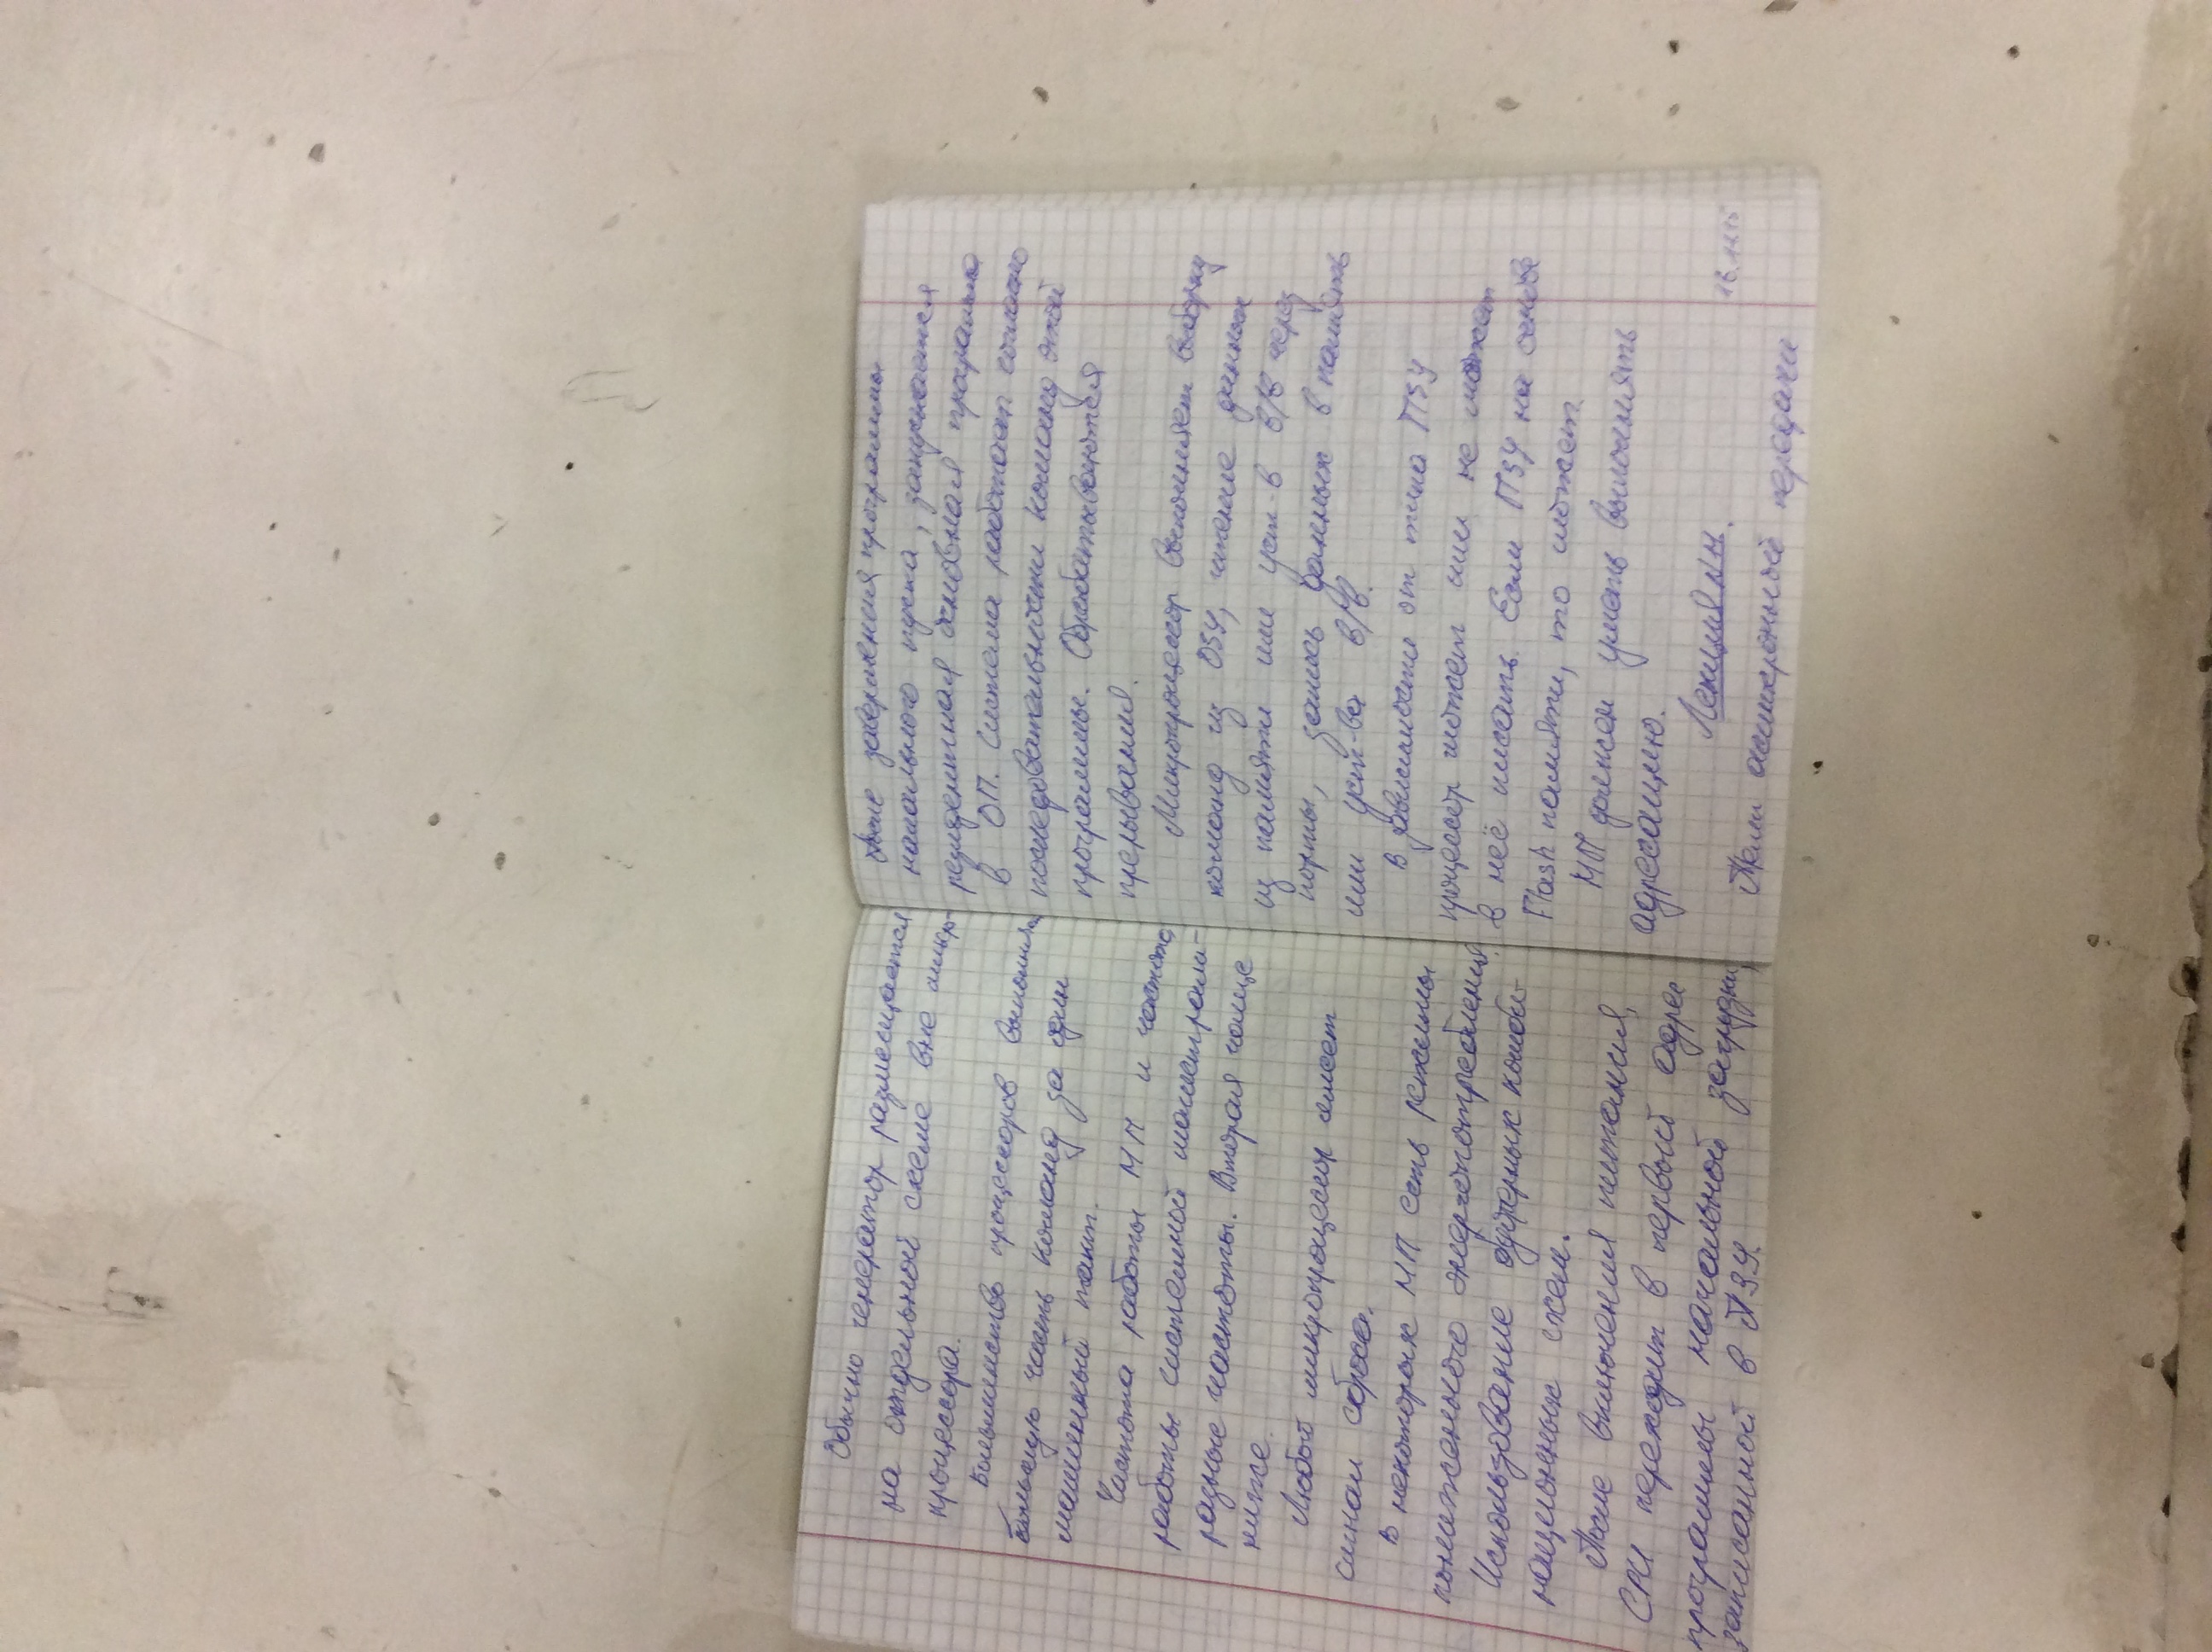 Обычно генератор размещается
на отдельной схеме вне микро-
процессора.
Большинство процессоров выполняют
большую часть команд за один
машинный такт.
Частота работы МП и частота
работы системной магистрали -
разные частоты. Вторая чаще
ниже.
Любой микропроцессор имеет
сигнал сброса.
В некоторых МП есть режимы
пониженного энергопотребления.
Использование буферных комби-
национных схем.
После включения питания,
CPU переходит в первый адрес
программы начальной загрузки,
записанной в ПЗУ.
После завершения программы
начального пуска, запускается
резидентная основная программа
в ОП. Система работает согласно
последовательности команд этой
программы. Обрабатываются
прерывания.
Микропроцессор выполняет выборку
команд из ОЗУ, чтение данных
из памяти или уст-в в/в через
порты, запись данных в память
или уст-ва в/в.
В зависимости от типа ПЗУ
процессор может или не может
в неё писать. Если ПЗУ на основе
Flash памяти, то может.
МП должен уметь выполнять
адресацию.
Лекция
асинхронной передачи